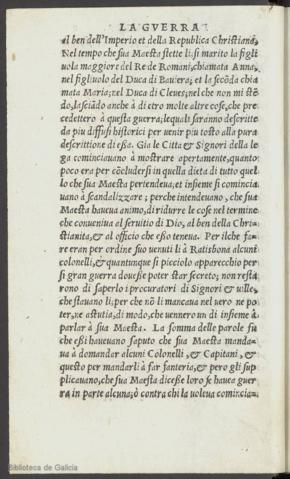 LA GVERRA
al ben dell'Imperio et della Republica Christiana.
Nel tempo che sua Maesta stette lì. si marito la figli
uola maggiore del Re de Romani, chiamata Anna,
nel figliuolo del Duca di Bauiera; et la secõda chia
mata Maria; nel Duca di Cleues; nel che non mi stẽ
do, lasciãdo anche à di etro molte altre cose, che pre
cedettero à questa guerra; lequali saranno descritte
da piu diffusi historici per venir piu tosto alla pura
descrittione di essa. Gia le Citta & Signori della le
ga cominciauano à mostrare apertamente, quanto
poco era per cõcludersi in quella dieta di tutto quel
lo che sua Maesta pertendeua; et insieme si comincia
uano à scandalizzare; perche intendeuano, che sua
Maesta haueua animo, di ridurre le cose nel termine
che conueniua al seruitio di Dio, al ben della Chri=
stianita, & al officio che esso teneua. Per ilche fu=
re eran per ordine suo venuti lì à Ratisbona alcuni
colonelli, & quantunque si picciolo apparecchio per
si gran guerra douesse poter star secreto; non resta
rono di saperlo i procuratori di Signori & ville,
che stauano lì; per che nõ li mancaua nel vero ne po
ter, ne astutia, di modo, che uennero un dì insieme à
parlar à sua Maesta. La somma delle parole fu
che essi haueuano saputo che sua Maesta manda=
ua à domandar alcuni Colonelli, & Capitani, &
questo per mandarli à far fanteria, & pero gli sup
plicauano, che sua Maesta dicesse loro se haueà guer
ra in parte alcuna; ò contra chi la voleua comincia=
Biblioteca de Galicia